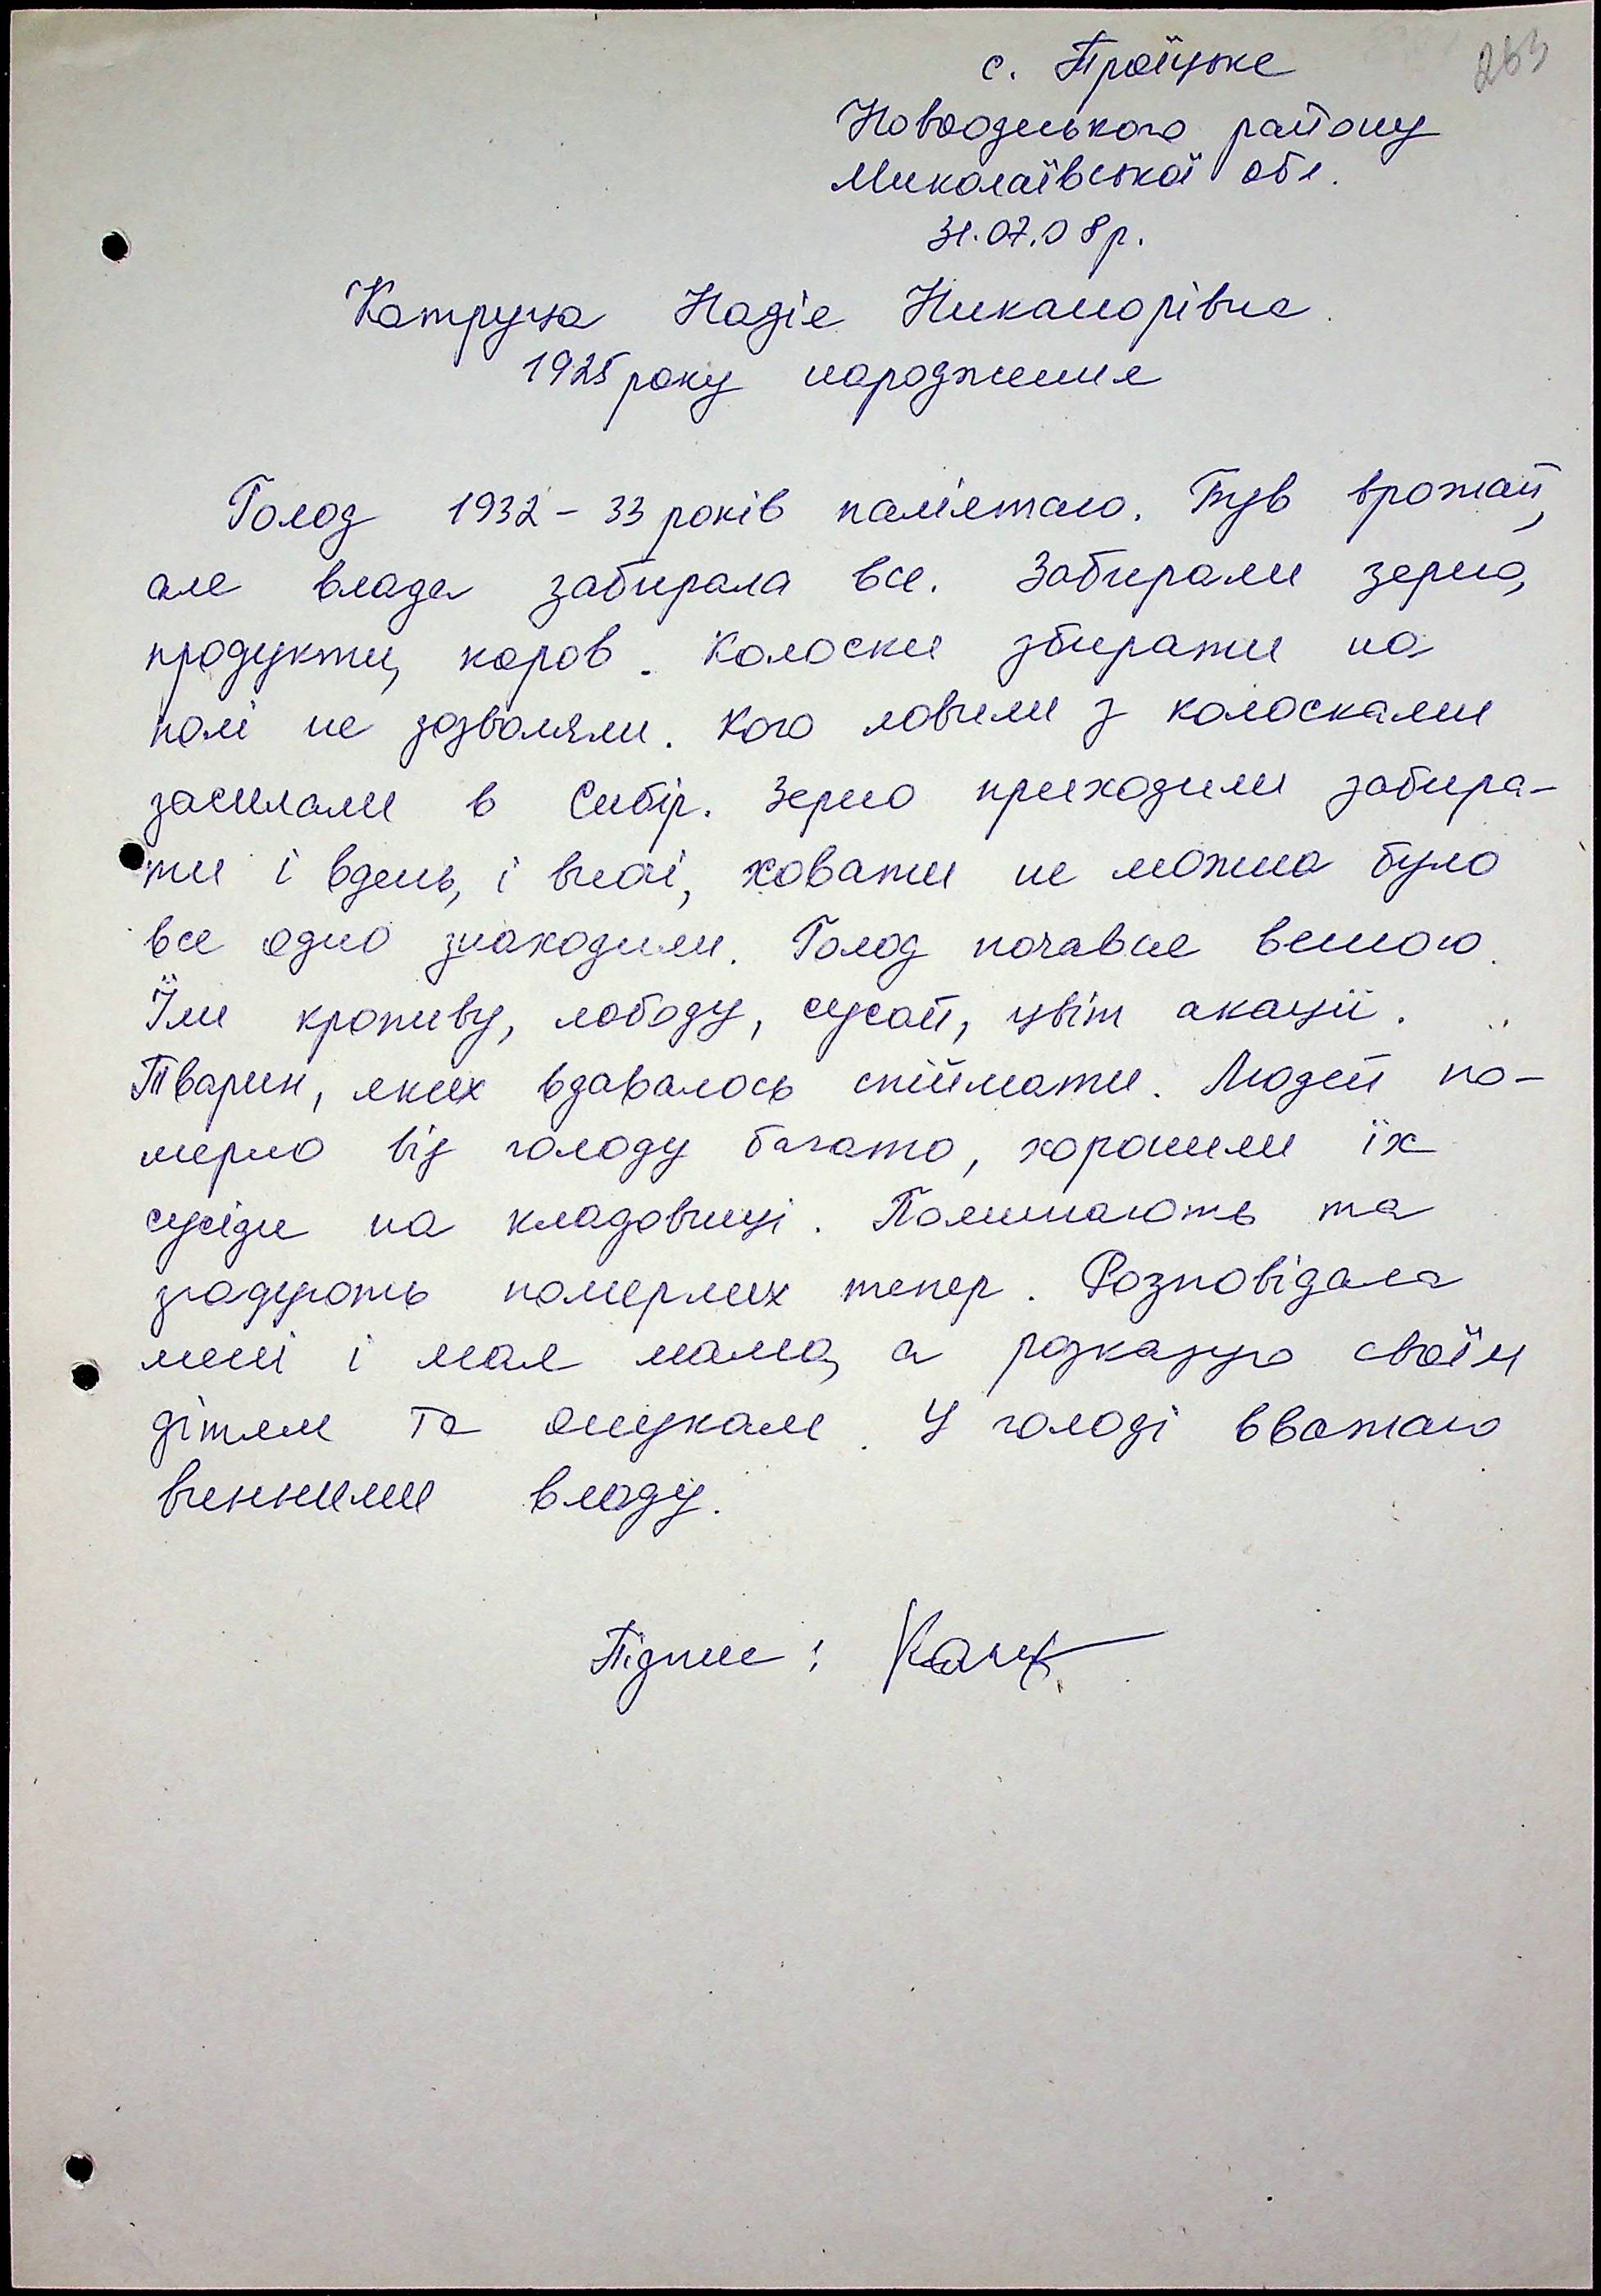 263
с. Троїцьке
Новоодеського району
Миколаївської обл.
31.07.08р.
Надія Никанорівна
1925 року народження
Голод 1932-33 років пам'ятаю. Був врожай,
але влада забирала все. Забирали зерно,
продукти, коров. Колоски збирати на
полі не дозволяли. Кого ловили з колосками
засилали в Сибір. Зерно приходили забира-
ти і вдень, і вночі, ховати не можна було
все одно знаходили. Голод почався весною.
Їли кропиву, лободу, сусай, цвіт акації.
Тварин, яких вдавалось спіймати. Людей по-
мерло від голоду багато, хоронили їх
сусіди на кладовищі. Поминають та
згадують померлих тепер. Розповідала
мені і моя мама, а розказую своїм
дітям та онукам. У голоді вважаю
винними владу.
Підпис: